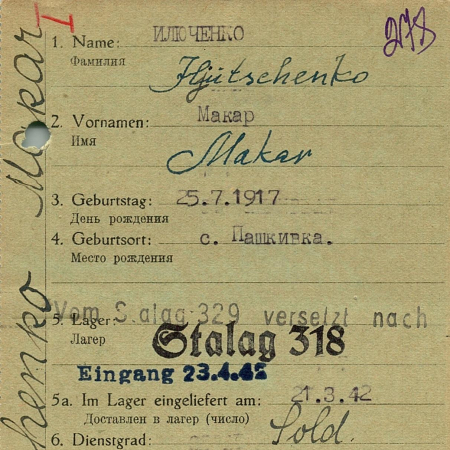 278
I
1. Name: ИЛЮЧЕНКО
Фамилия
Iljutschenko
2. Vornamen: Макар
Имя
Makar
3. Geburtstag: 25.7.1917
День рождения
4. Geburtsort: с. Пашкивка.
Место рождения
Vom S alag 329 versetzt nach
5. Lager: Stalag 318
Лагер
Eingang 23.4.42
5a. Im Lager eingeliefert am: 21.3.42
Доставлен в лагер (число)
6. Dienstgrad: Sold.
henko Makar